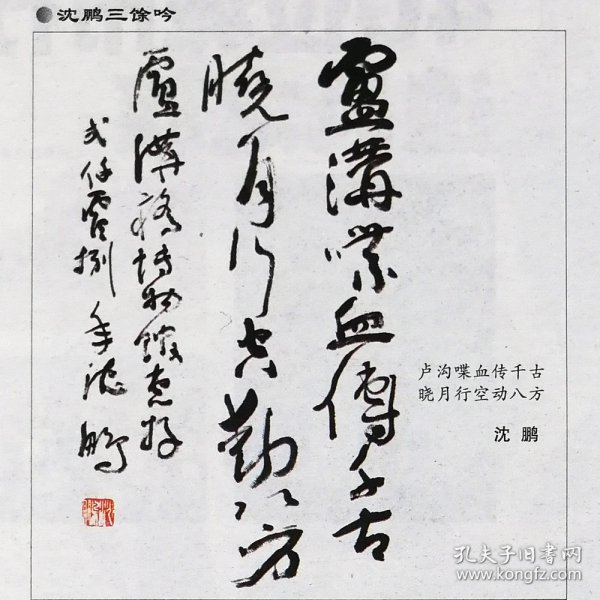 沈鹏三馀吟
盧溝喋血傳千古
曉月行空動八方
盧溝橋博物館克存
弍仟零捌年沈鵬
卢沟喋血传千古
晓月行空动八方
沈 鹏
孔夫子旧书网
www.kongfz.com